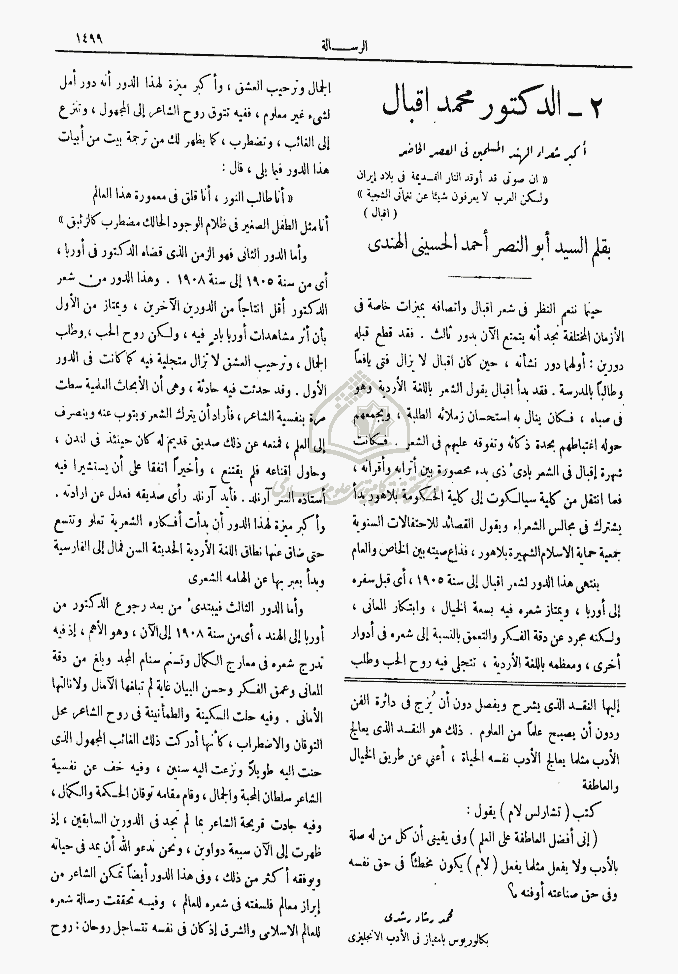 الرسالة
١٤٩٩
٢ - الدكتور محمد اقبال
أكبر شعراء الهند المسلمين فى العصر الحاضر
« ان صوتى قد أوقد النار القديمة فى بلاد إيران
ولكن العرب لا يعرفون شيئا عن نغماتى الشجية »
( اقبال )
بقلم السيد أبو النصر أحمد الحسينى الهندى
حينما ننعم النظر فى شعر اقبال واتصافه بميزات خاصة فى
الأزمان المختلفة نجد أنه يتمتع الآن بدور ثالث . فقد قطع قبله
دورين : أولهما دور نشأته ، حين كان اقبال لا يزال فتى يافعاً
وطالباً بالمدرسة . فقد بدأ اقبال يقول الشعر باللغة الأردية وهو
فى صباه ، فكان ينال به استحسان زملائه الطلبة ، ويجمعهم
حوله اغتباطهم بحدة ذكائه وتفوقه عليهم فى الشعر . فكانت
شهرة إقبال فى الشعر بادئ ذى بدء محصورة بين أترابه وأقرانه ،
فما انتقل من كلية سيالكوت إلى كلية الحكومة بلاهور بدأ
يشترك فى مجالس الشعراء ويقول القصائد للاحتفالات السنوية
لجمعية حماية الاسلام الشهيرة بلاهور ، فذاع صيته بين الخاص والعام
ينتهى هذا الدور لشعر اقبال إلى سنة ١٩٠٥ ، أى قبل سفره
إلى أوربا ، ويمتاز شعره فيه بسعة الخيال ، وابتكار المعانى ،
ولكنه مجرد عن دقة الفكر والتعمق بالنسبة إلى شعره فى أدوار
أخرى ، ومعظمه باللغة الأردية ، تتجلى فيه روح الحب وطلب
الجمال وترحيب العشق ، وأكبر ميزة لهذا الدور أنه دور أمل
لشىء غير معلوم ، ففيه تتوق روح الشاعر إلى المجهول ، وتنزع
إلى الغائب ، وتضطرب ، كما يظهر لك من ترجمة بيت من أبيات
هذا الدور فيما يلى ، قال :
« أنا طالب النور ، أنا قلق فى معمورة هذا العالم
أنا مثل الطفل الصغير فى ظلام الوجود الحالك مضطرب كالزئبق »
وأما الدور الثانى فهو الزمن الذى قضاه الدكتور فى أوربا ،
أى من سنة ١٩٠٥ إلى سنة ١٩٠٨ . وهذا الدور من شعر
الدكتور أقل انتاجاً من الدورين الآخرين ، ويمتاز من الأول
بأن أثر مشاهدات أوربا بادٍ فيه ، ولكن روح الحب ، وطلب
الجمال ، وترحيب العشق لا تزال متجلية فيه كما كانت فى الدور
الأول . وقد حدثت فيه حادثة ، وهى أن الأبحاث العلمية سطت
مرة بنفسية الشاعر ، فأراد أن يترك الشعر ويتوب عنه وينصرف
إلى العلم ، فمنعه عن ذلك صديق قديم له كان حينئذ فى لندن ،
وحاول اقناعه فلم يقتنع ، وأخيراً اتفقا على أن يستشيرا فيه
أستاذه السر آرنلد . فأيد آرنلد رأى صديقه فعدل عن ارادته .
وأكبر ميزة لهذا الدور أن بدأت أفكاره الشعرية تعلو وتتسع
حتى ضاق عنها نطاق اللغة الأردية الحديثة السن فمال إلى الفارسية
وبدأ يعبر بها عن الهامه الشعرى
وأما الدور الثالث فيبتدئ من بعد رجوع الدكتور من
أوربا إلى الهند ، أى من سنة ١٩٠٨ إلى الآن ، وهو الأهم ، إذ فيه
تدرج شعره فى معارج الكمال وتسنم سنام المجد وبلغ من دقة
المعانى وعمق الفكر وحسن البيان غاية لم تبلغها الآمال ولا نالتها
الأمانى . وفيه حلت السكينة والطمأنينة فى روح الشاعر محل
التوقان والاضطراب ، كأنها أدركت ذلك الغائب المجهول الذى
حنت اليه طويلاً ونزعت اليه سنين ، وفيه خف عن نفسية
الشاعر سلطان المحبة والجمال ، وقام مقامه توقان الحكمة والكمال ،
وفيه جادت قريحة الشاعر بما لم تجد فى الدورين السابقين ، إذ
ظهرت إلى الآن سبعة دواوين ، ونحن ندعو الله أن يمد فى حياته
ويوفقه أكثر من ذلك ، وفى هذا الدور أيضاً تمكن الشاعر من
إبراز معالم فلسفته فى شعره للعالم ، وفيه تحققت رسالة شعره
للعالم الاسلامى والشرق إذ كان فى نفسه تتساجل روحان : روح
إليها النقد الذى يشرح ويفصل دون أن يُزج فى دائرة الفن
ودون أن يصبح علماً من العلوم . ذلك هو النقد الذى يعالج
الأدب مثلما يعالج الأدب نفسه الحياة ، أعنى عن طريق الخيال
والعاطفة
كتب ( تشارلس لام ) يقول :
( إنى أفضل العاطفة على العلم ) وفى يقينى أن كل من له صلة
بالأدب ولا يفعل مثلما يفعل ( لام ) يكون مخطئاً فى حق نفسه
وفى حق صناعته أو فنه ؟
محمد رشاد رشدى
بكالوريوس بامتياز فى الأدب الانجليزى